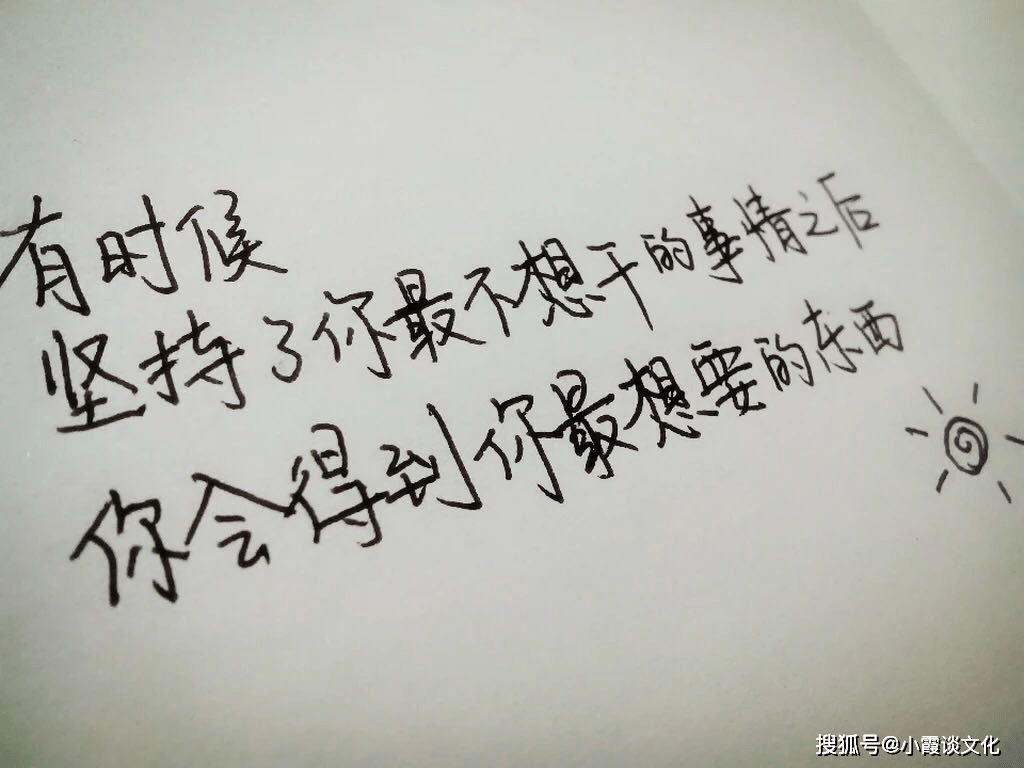 有时候
坚持了你最不想干的事情之后
你会得到你最想要的东西
搜狐号@小霞谈文化